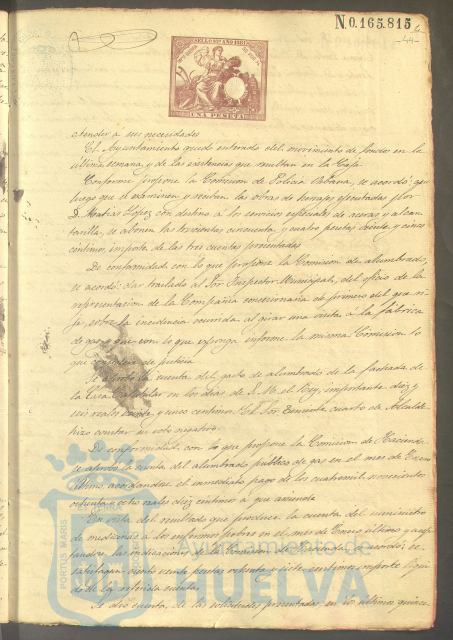 N.0.165.815
-44-
SELLO 10º AÑO 1881
UNA PESETA
atender a sus necesidades
El Ayuntamiento quedó enterado del movimiento de fondos en la
última semana, y de las existencias que resultan en la Caja
Conforme propone la Comision de Policia Urbana, se acordó: que
luego que se examinen y reciban las obras de herrajes ejecutadas por
D. Matias Lopez con destino á los servicios especiales de aceras y alcan-
tarilla, se abonen las trescientas cincuenta y cuatro pesetas veinte y cinco
centimos, importe de las tres cuentas presentadas
De conformidad con lo que propone la Comision de alumbrado,
se acordó: dar traslado al Sor Inspector Municipal, del oficio de la
representacion de la Compañia concesionaria de primero del que ri-
ge, sobre la incidencia ocurrida al girar una visita á la fábrica
de gas y que con lo que exponga informe la misma Comision lo
que considere de justicia
Se aprobó la cuenta del gasto de alumbrado de la fachada de
la Casa Capitular en los dias de S. M. el Rey, importante diez y
seis reales veinte y cinco centimos. El Sor Teniente cuarto de Alcalde
hizo constar su voto negativo.
De conformidad con lo que propone la Comision de Hacienda
se aprobó la cuenta del alumbrado público de gas en el mes de Enero
último acordandose el inmediato pago de los cuatromil novecientos
ochenta y ocho reales diez centimos á que asciende
En vista del resultado que produce la cuenta del suministro
de medicinas á los enfermos pobres en el mes de Enero último y acep-
tandose las indicaciones de la Comision de Beneficencia se acordó: se
satisfagan ciento veinte pesetas ochenta y siete centimos, importe liqui-
do de la referida cuenta.
Se dió cuenta de las solicitudes presentadas en los últimos quince
PORTUS MARIS
Ayuntamiento de
HUELVA